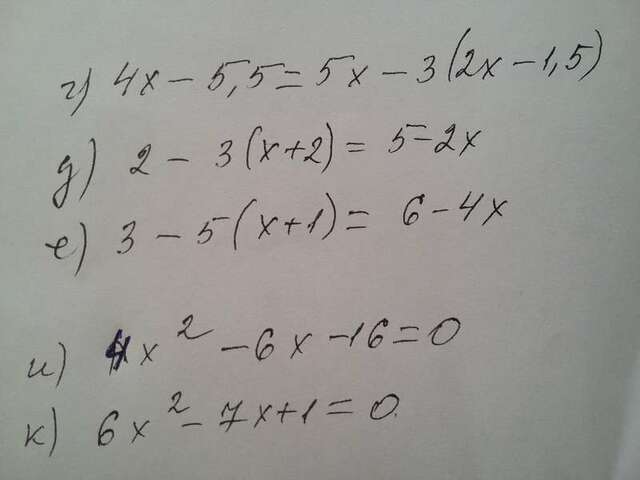 г) 4x - 5,5 = 5x - 3(2x - 1,5)
д) 2 - 3(x+2) = 5-2x
е) 3 - 5(x+1) = 6 - 4x
и) x² - 6x - 16 = 0
к) 6x² - 7x + 1 = 0.